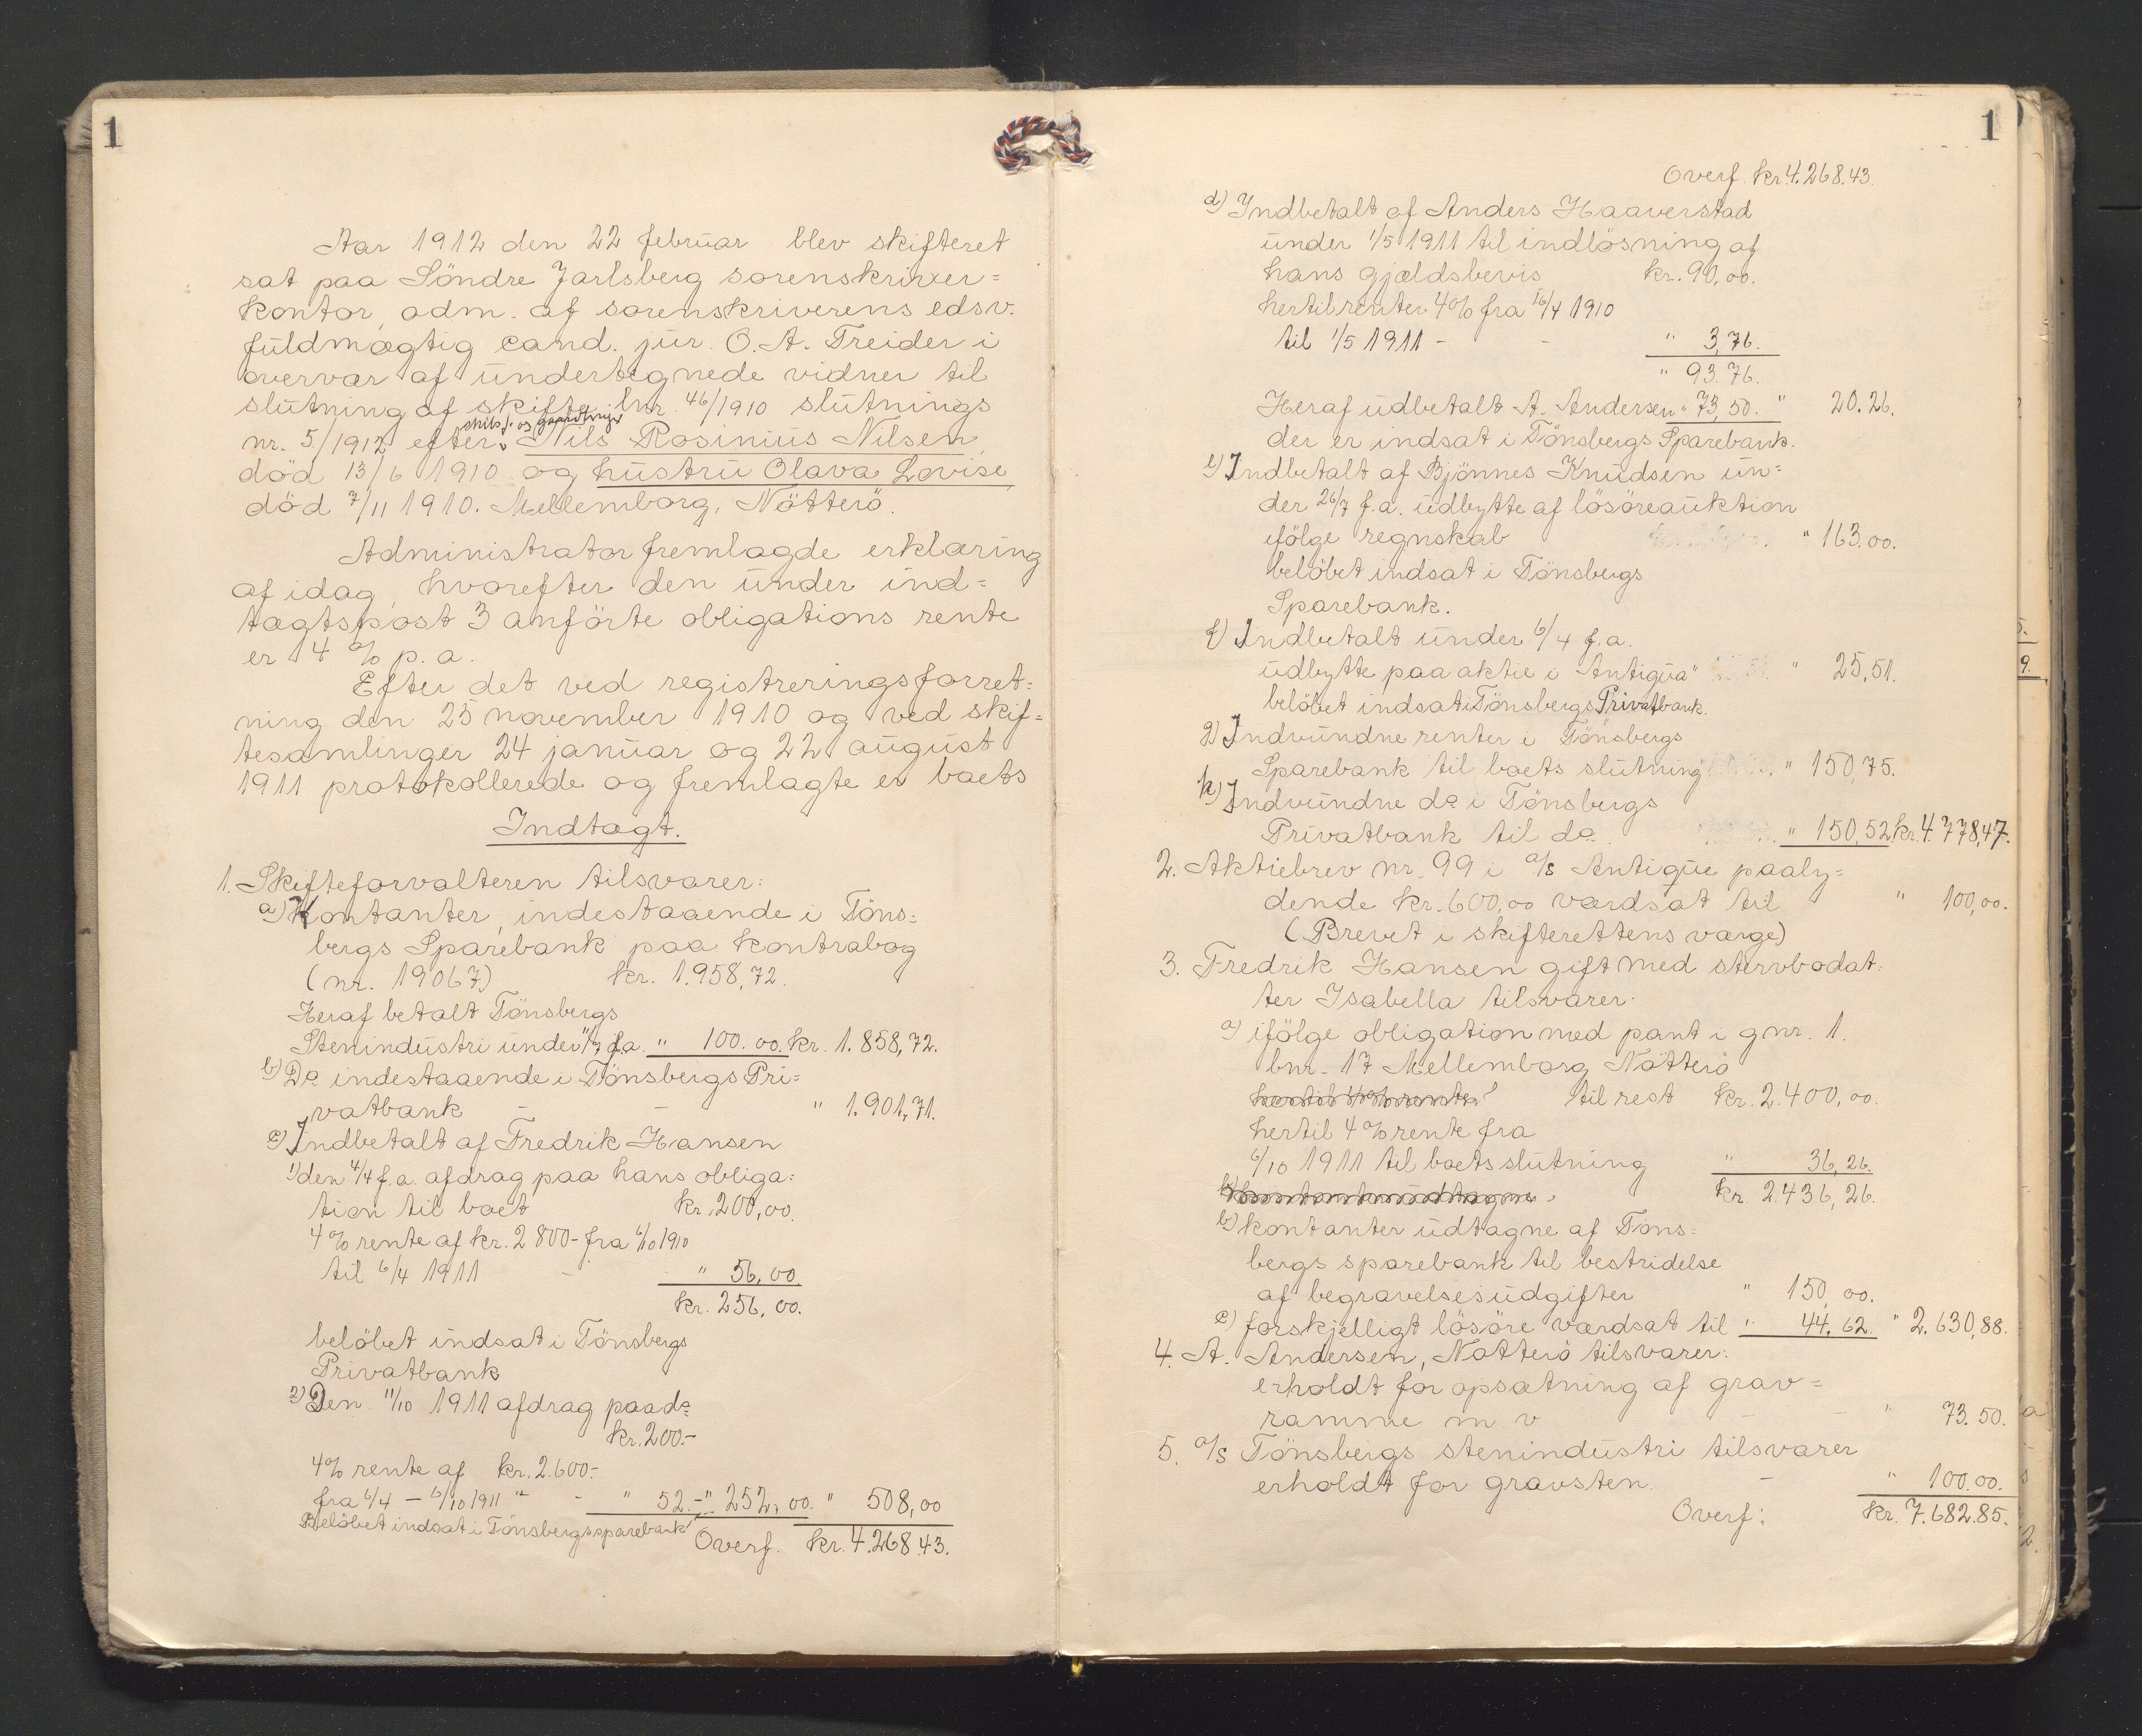 1
Aar 1912 den 22 februar blev skifteret
sat paa Söndre Jarlsberg sorenskriver=
kontor, adm. af sorenskriverens edsv.
fuldmægtig cand. jur. O. A. Treider i
overvær af undertegnede vidner til
slutning af skifte lnr. 46/1910 slutnings
skibsf. og gaardbruger
nr. 5/1912 efter Nils Rosinius Nilsen,
död 13/6 1910 og hustru Olava Lovise,
död 7/11 1910. Mellemborg, Nötterö.
Administrator fremlagde erklæring
af idag, hvorefter den under ind=
tægtspost 3 anförte obligations rente
er 4 % p. a.
Efter det ved registreringsforret=
ning den 25 november 1910 og ved skif=
tesamlinger 24 januar og 22 august
1911 protokollerede og fremlagte er boets
Indtægt.
1. Skifteforvalteren tilsvarer:
a) Kontanter, indestaaende i Töns=
bergs Sparebank paa kontrabog
(nr. 19067) kr. 1.958,72.
Heraf betalt Tönsbergs
Stenindustri under f.a. " 100.00. kr. 1.858,72.
b) Do indestaaende i Tönsbergs Pri=
vatbank - - " 1.901,71.
c) Indbetalt af Fredrik Hansen
1) den 4/4 f.a. afdrag paa hans obliga=
tion til boet kr. 200,00.
4 % rente af kr. 2800- fra 6/10 1910
til 6/4 1911 - " 56,00
kr. 256,00.
belöbet indsat i Tönsbergs
Privatbank
2) Den 11/10 1911 afdrag paa do
kr. 200.-
4% rente af kr. 2.600.-
fra 6/4 - 6/10 1911 " - " 52.- " 252,00. " 508,00
Belöbet indsat i Tönsbergs sparebank
Overf. kr. 4.268.43.
1
Overf. kr. 4.268.43.
d) Indbetalt af Anders Haaverstad
under 1/5 1911 til indlösning af
hans gjældsbevis kr. 90,00.
hertil renter 4% fra 16/4 1910
til 1/5 1911 - - " 3,76.
" 93.76.
Heraf udbetalt A. Andersen " 73,50. " 20.26.
der er indsat i Tönsbergs Sparebank.
e) Indbetalt af Bjönnes Knudsen un=
der 26/7 f.a. udbytte af lösöreauktion
ifölge regnskab " 163.00.
belöbet indsat i Tönsbergs
Sparebank.
f) Indbetalt under 6/4 f.a.
udbytte paa aktie i "Antigua" " 25,51.
belöbet indsat i Tönsbergs Privatbank.
g) Indvundne renter i Tönsbergs
Sparebank til boets slutning " 150,75.
h) Indvundne do i Tönsbergs
Privatbank til do " 150,52 kr. 4.778,47.
2. Aktiebrev nr. 99 i a/s Antigue paaly=
dende kr. 600,00 værdsat til " 100,00.
(Brevet i skifterettens værge)
3. Fredrik Hansen gift med stervbodat=
ter Isabella tilsvarer.
a) ifölge obligation med pant i gnr. 1.
bnr. 17 Mellemborg Nötterö
til rest kr. 2.400,00.
hertil 4 % rente fra
6/10 1911 til boets slutning " 36,26.
kr. 2.436,26.
b) kontanter udtagne af Töns=
bergs sparebank til bestridelse
af begravelsesudgifter " 150,00.
c) forskjelligt lösöre værdsat til " 44,62. " 2.630,88.
4. A. Andersen, Nötterö tilsvarer:
erholdt for opsætning af grav=
ramme m v - - " 73.50.
5. a/s Tönsbergs stenindustri tilsvarer
erholdt for gravsten. - " 100.00.
Overf: kr. 7.682.85.